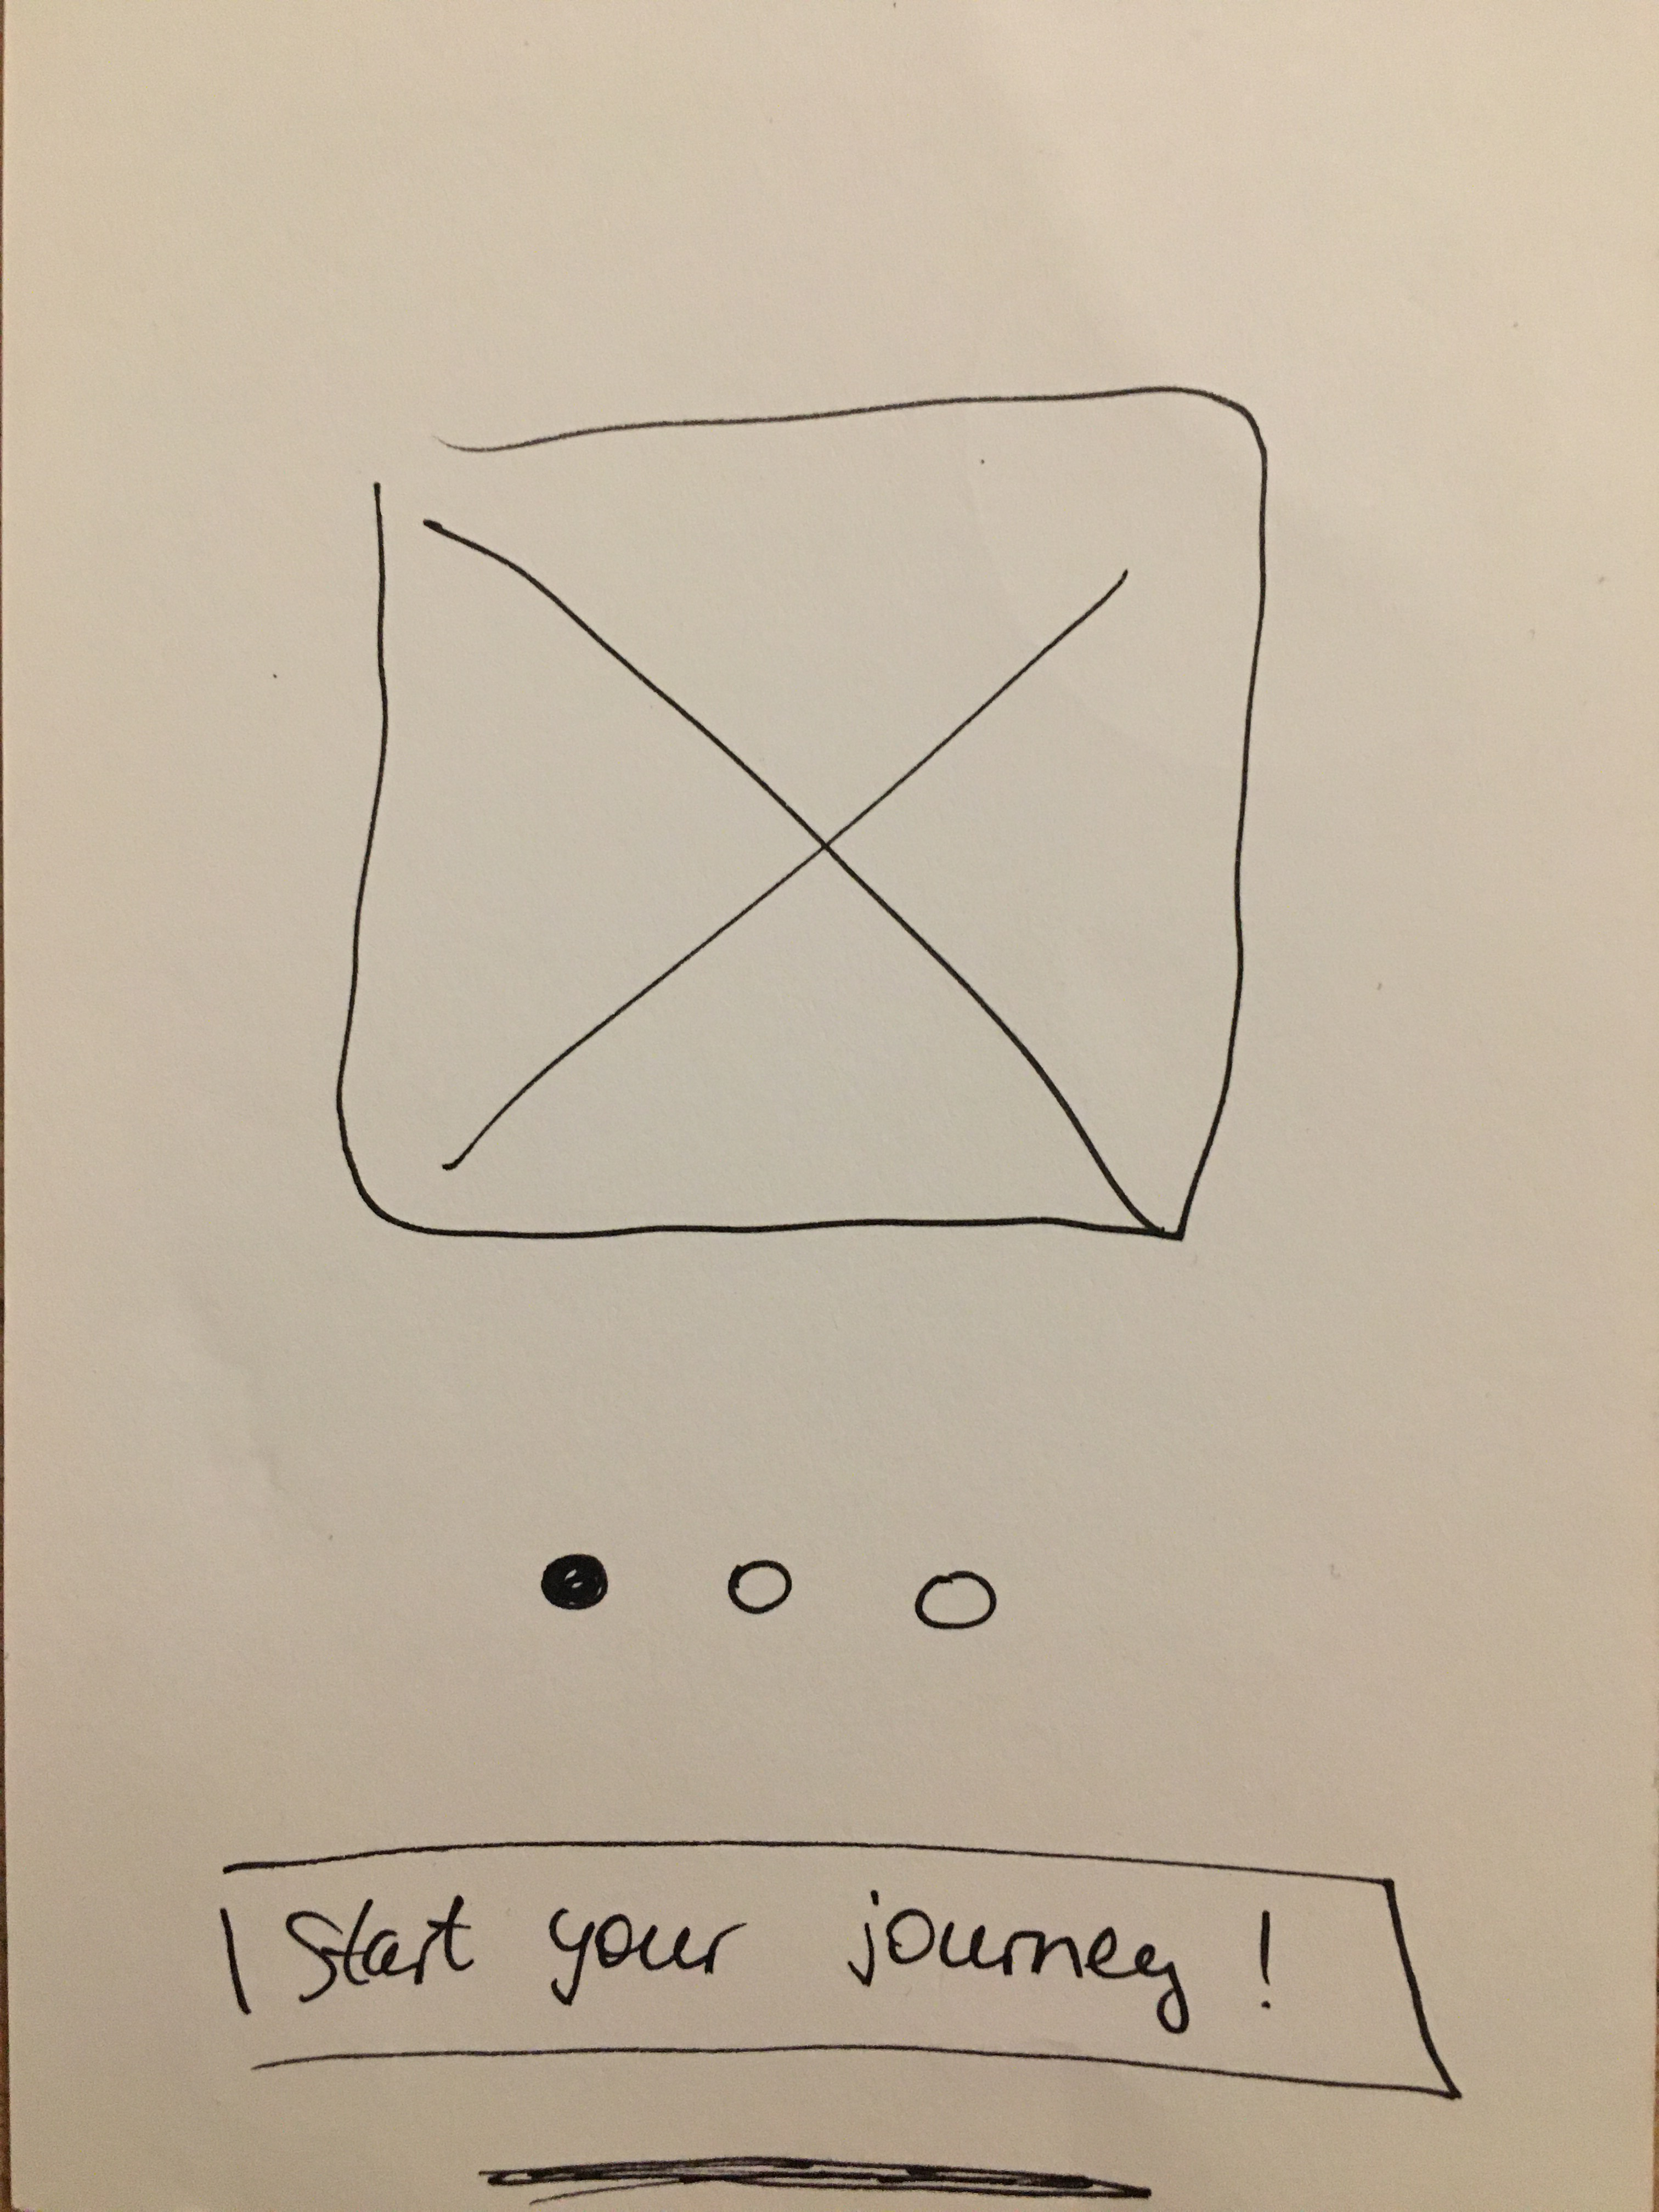 Start your journey!